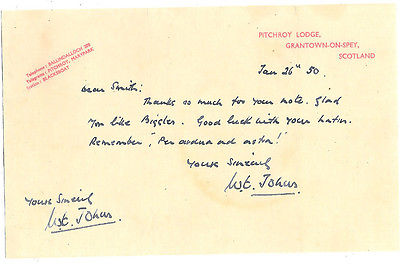 Telephone: BALLINDALLOCH 205
Telegrams: PITCHROY, MARYPARK
Station: BLACKSBOAT
PITCHROY LODGE,
GRANTOWN-ON-SPEY,
SCOTLAND
Jan 26th 50.
Dear Smith:
Thanks so much for your note. Glad
you like Biggles. Good luck with your Latin.
Remember, "Per ardua ad astra!
Yours Sincerely
W.E. Johns
Yours Sincerely
W.E. Johns.